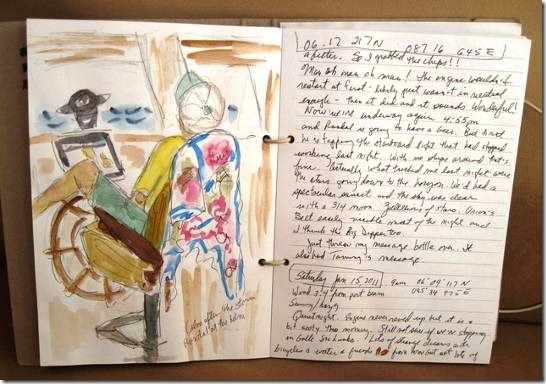 06. 17 217 N 087 16 645 E
a fetter. So I grabbed the chips!!
Man oh man oh man! The engine wouldn't
restart at first - likely just wasn't in neutral
enough - then it did and it sounds Wonderful!
Now we're underway again 4:55pm
and is going to have a beer. But first
he is the starboard light that had stopped
working last night. With no ships around that's
fine. Actually what me last night were
the stars going down to the horizon. We'd had a
spectacular sunset and the sky was clear
with a 3/4 moon. of stars. Orion's
Belt easily visible most of the night and
I think the Big Dipper too.
Just threw my message bottle over. It
also had Tammy's message.
Saturday Jan 15, 2011 9am 06° 09' 117 N
Wind 3.4 from port beam 085° 34
Sunny/hazy
Quiet night. Engine never revved up but it is a
bit this morning. Still not sure if we're stopping
in Galle Sri Lanka. Lots of strange dreams with
bicycles & water & friends from home but not lots of
after the storm
at the helm